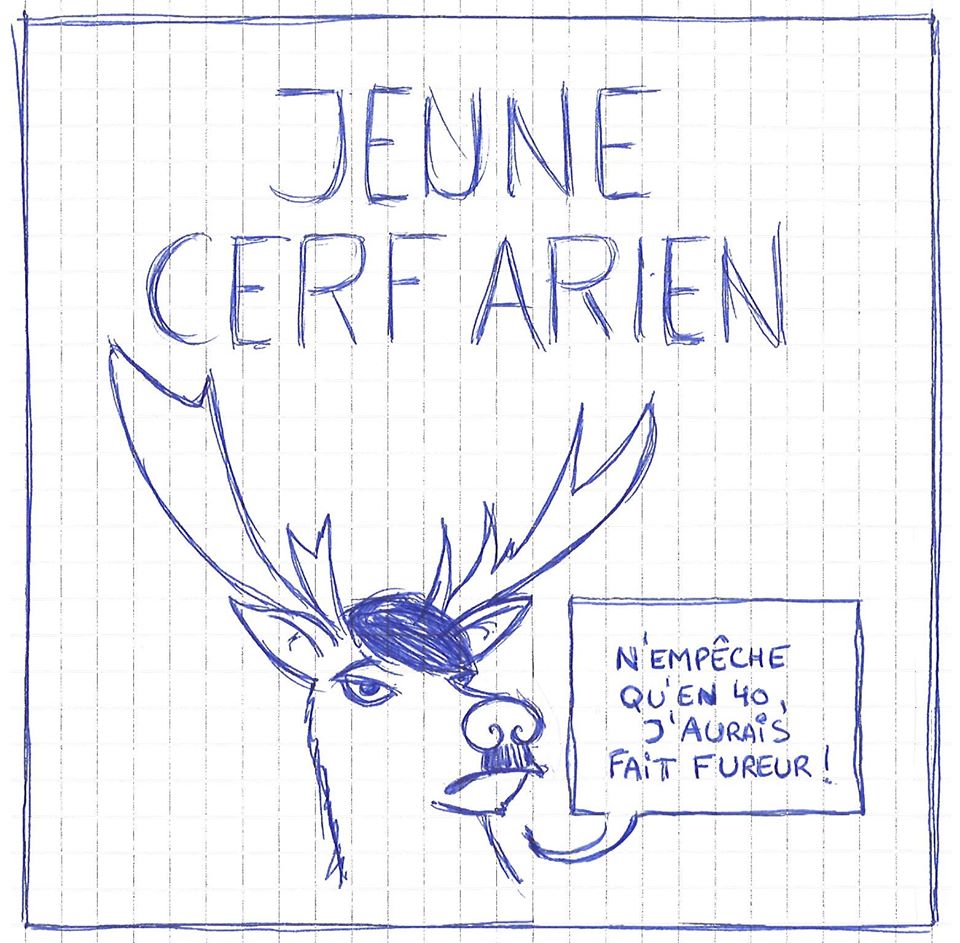 JEUNE
CERF ARIEN
N'EMPÊCHE
QU'EN 40,
J'AURAIS
FAIT FUREUR !